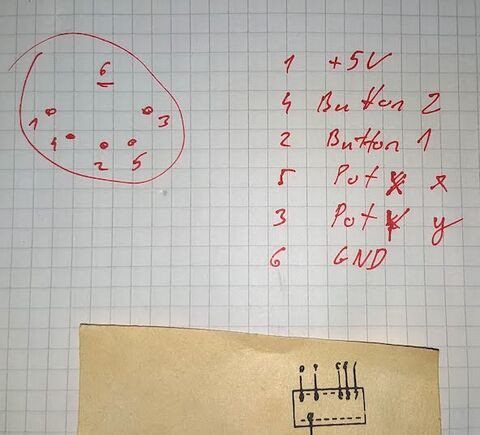 6
1
3
4
2 5
1 +5V
4 Button 2
2 Button 1
5 Pot x
3 Pot y
6 GND